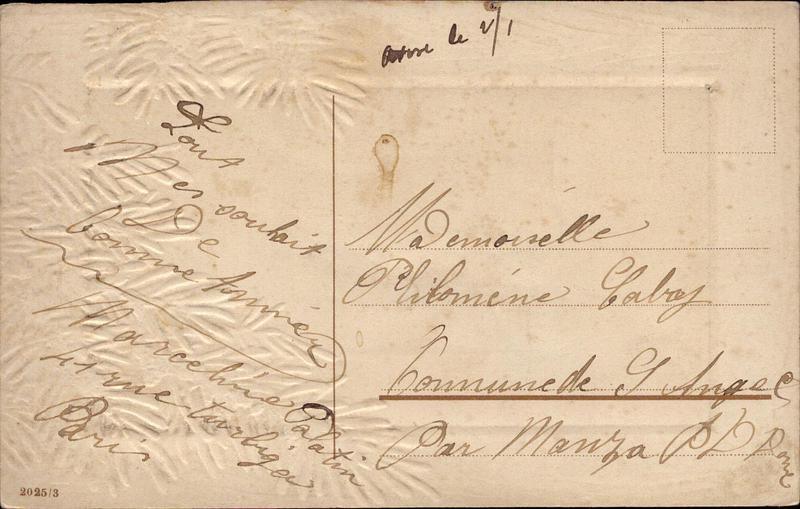 le 2/1
Tous
Mes souhait
De
bonne Année
Marceline Palatin
41 rue turbigo
Paris
Mademoiselle
Philoméne
Commune de S Ange
Par Manza P D Dome
2025/3